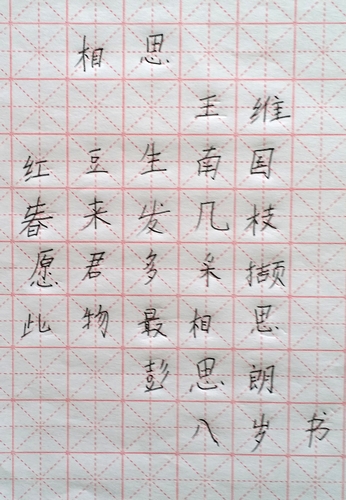 相思
王维
红豆生南国
春来发几枝
愿君多采撷
此物最相思
彭思朗
八岁书